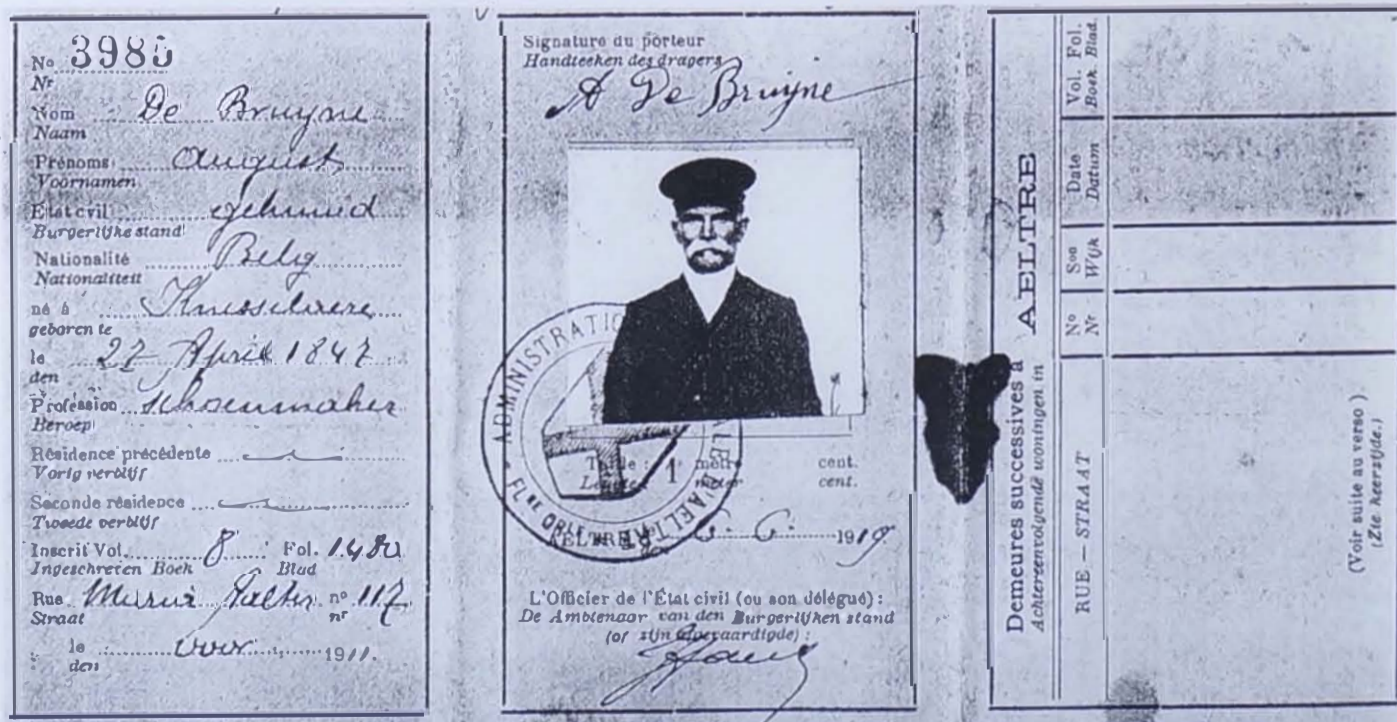 Nº 3985
Nr
Nom De Bruyne
Naam
Prénoms August
Voornamen
État civil gehuwd
Burgerlijke stand
Nationalité Belg
Nationaliteit
né à Knesselaere
geboren te
le 27 April 1847
den
Profession schoenmaker
Beroep
Résidence précédente
Vorig verblijf
Seconde résidence
Tweede verblijf
Inscrit Vol. 8 Fol. 1480
Ingeschreven Boek Blad
Rue Maria Aalter nº 117
Straat nr
le voor 1911.
den
Signature du porteur
Handteeken des dragers
A De Bruyne
ADMINISTRATIO LE D'AELTRE
FL RE ORLE
Taille : 1 mètre cent.
Lengte meter cent.
AELTRE, le 6 - 6 1919
den
L'Officier de l'État civil (ou son délégué) :
De Ambtenaar van den Burgerlijken stand
(of zijn afgevaardigde) :
Demeures successives à AELTRE
Achtereenvolgende woningen in
RUE — STRAAT
Nº
Nr
Son
Wijk
Date
Datum
Vol. Fol.
Boek Blad.
(Voir suite au verso).
(Zie keerzijde.)